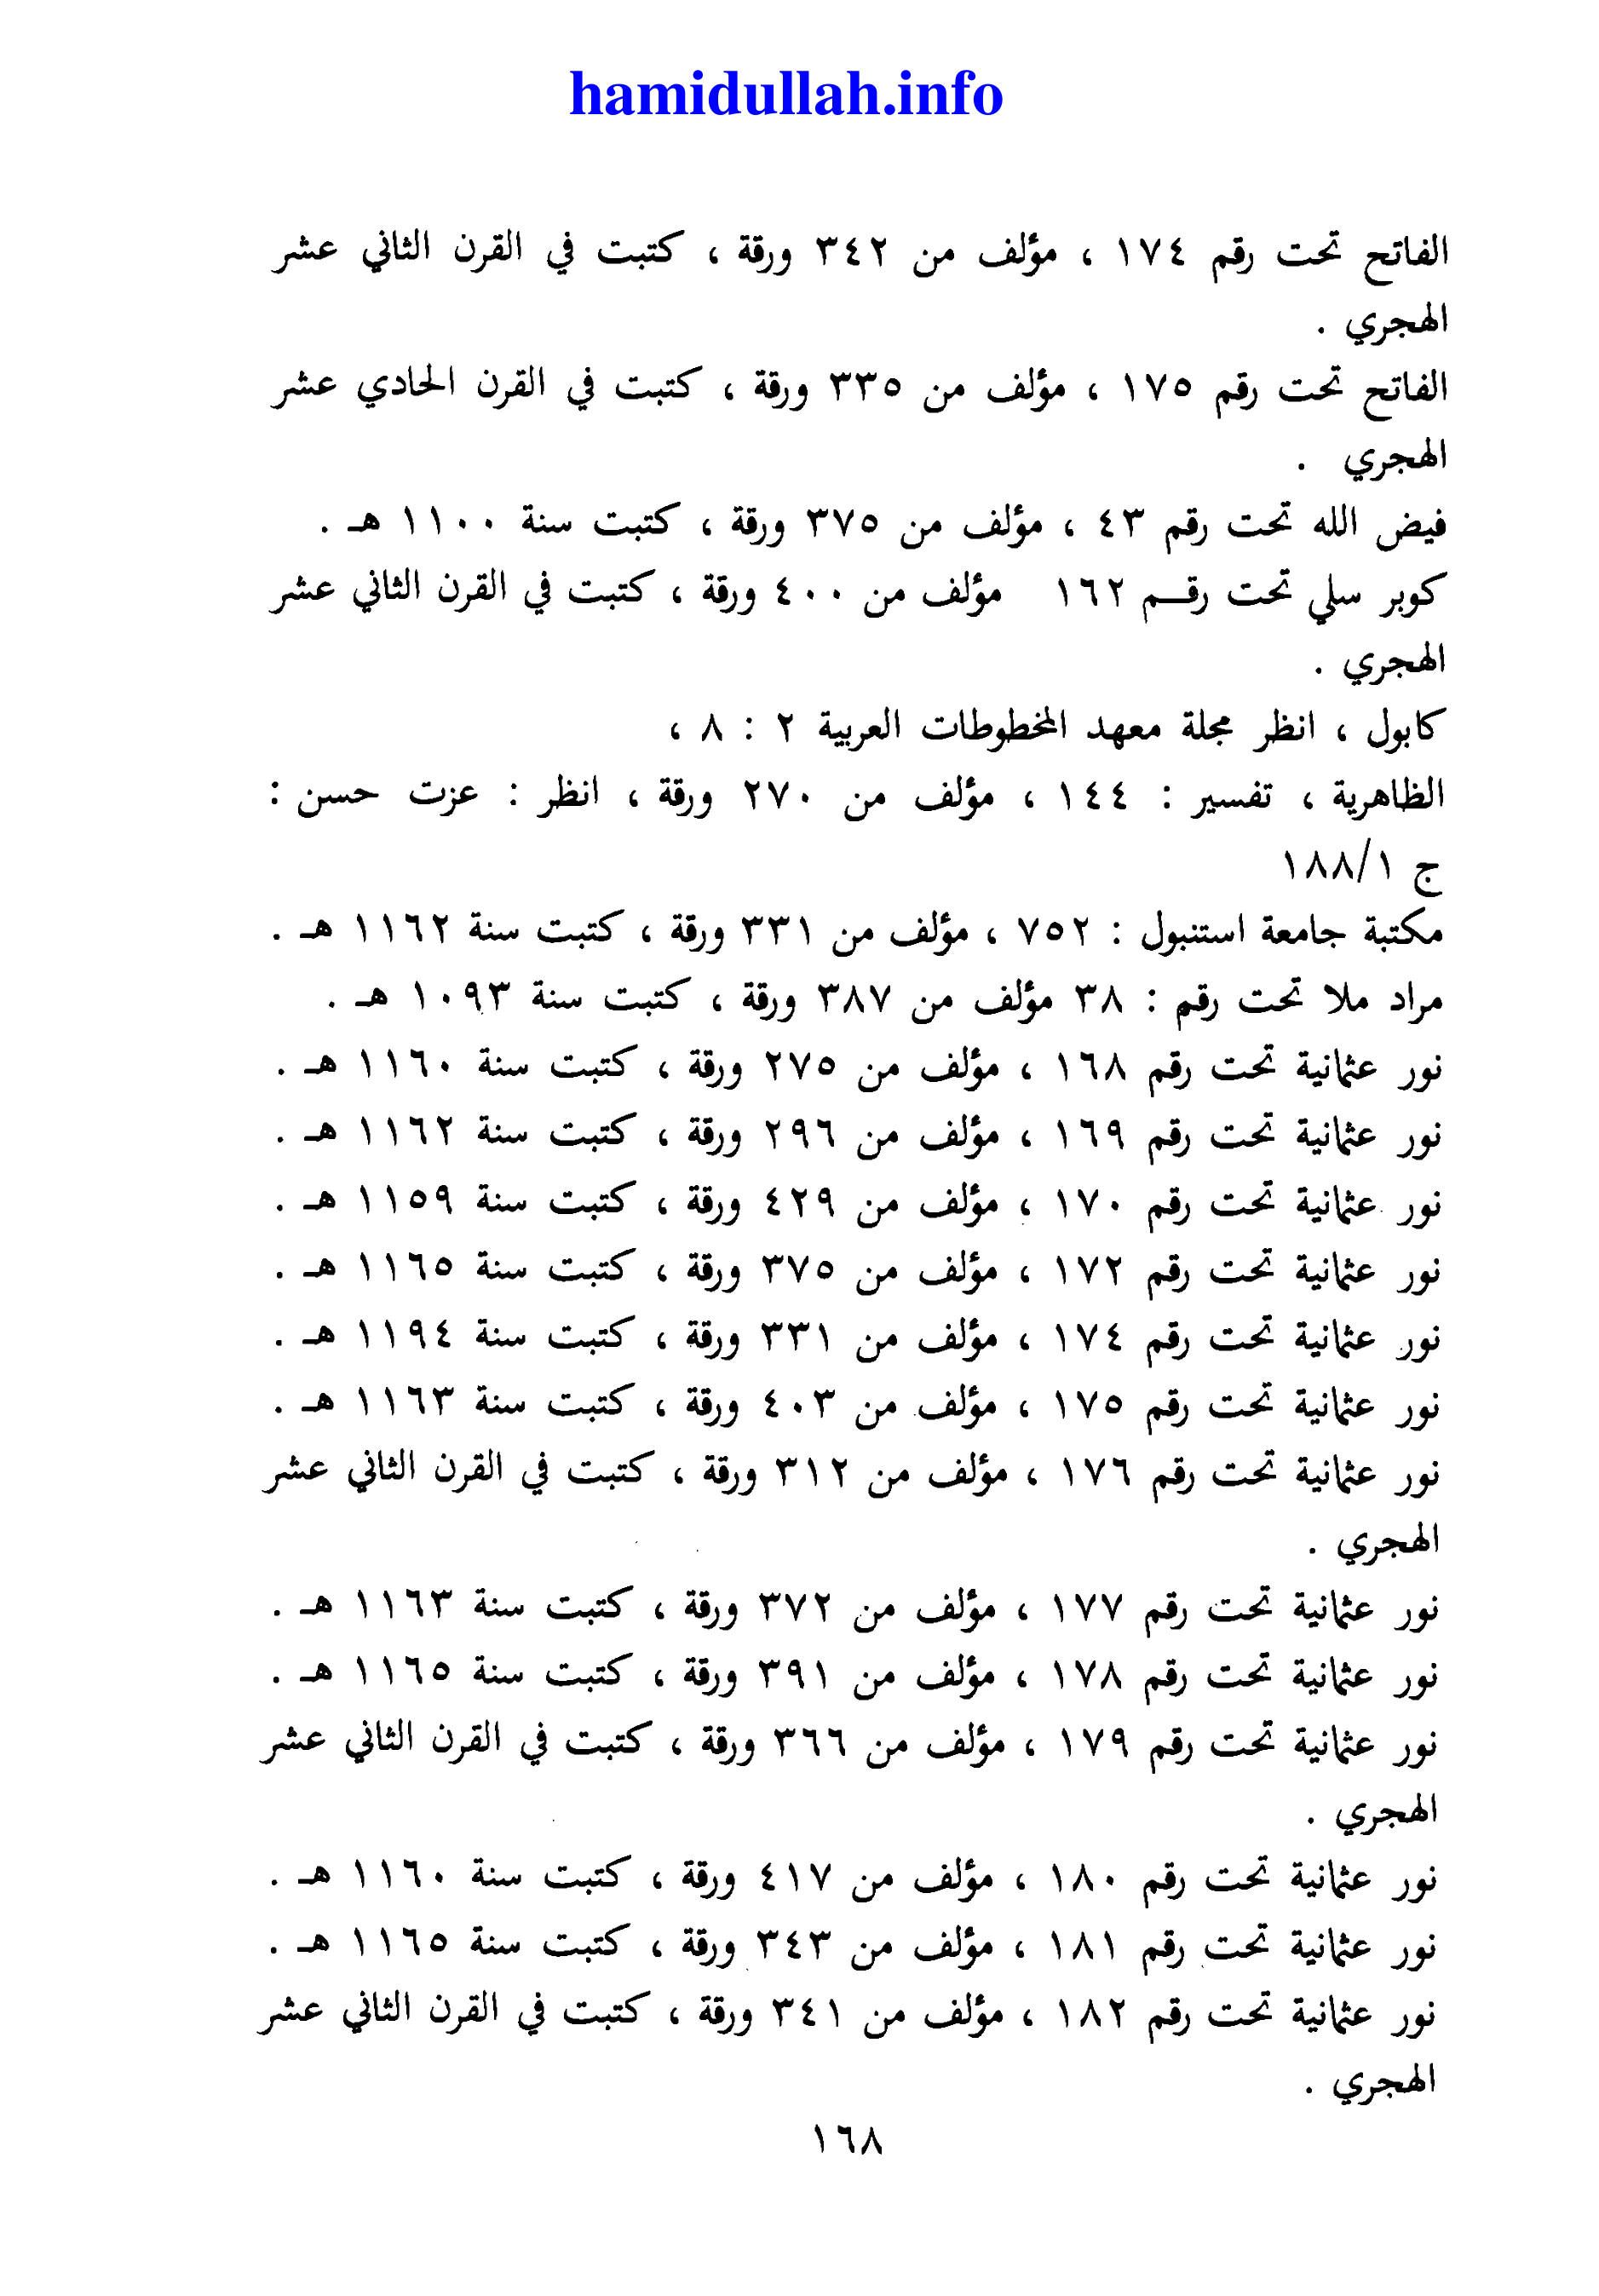 hamidullah.info
الفاتح تحت رقم ١٧٤ ، مؤلف من ٣٤٢ ورقة ، كتبت في القرن الثاني عشر
الهجري .
الفاتح تحت رقم ١٧٥ ، مؤلف من ٣٣٥ ورقة ، كتبت في القرن الحادي عشر
الهجري .
فيض الله تحت رقم ٤٣ ، مؤلف من ٣٧٥ ورقة ، كتبت سنة ١١٠٠ هـ .
كوبر سلي تحت رقـــم ١٦٢ مؤلف من ٤٠٠ ورقة ، كتبت في القرن الثاني عشر
الهجري .
كابول ، انظر مجلة معهد المخطوطات العربية ٢ : ٨ ،
الظاهرية ، تفسير : ١٤٤ ، مؤلف من ٢٧٠ ورقة ، انظر : عزت حسن :
ج ١٨٨/١
مكتبة جامعة استنبول : ٧٥٢ ، مؤلف من ٣٣١ ورقة ، كتبت سنة ١١٦٢ هـ .
مراد ملا تحت رقم : ٣٨ مؤلف من ٣٨٧ ورقة ، كتبت سنة ١٠٩٣ هـ .
نور عثمانية تحت رقم ١٦٨ ، مؤلف من ٢٧٥ ورقة ، كتبت سنة ١١٦٠ هـ .
نور عثمانية تحت رقم ١٦٩ ، مؤلف من ٢٩٦ ورقة ، كتبت سنة ١١٦٢ هـ .
نور عثمانية تحت رقم ١٧٠ ، مؤلف من ٤٢٩ ورقة ، كتبت سنة ١١٥٩ هـ .
نور عثمانية تحت رقم ١٧٢ ، مؤلف من ٣٧٥ ورقة ، كتبت سنة ١١٦٥ هـ .
نور عثمانية تحت رقم ١٧٤ ، مؤلف من ٣٣١ ورقة ، كتبت سنة ١١٩٤ هـ .
نور عثمانية تحت رقم ١٧٥ ، مؤلف من ٤٠٣ ورقة ، كتبت سنة ١١٦٣ هـ .
نور عثمانية تحت رقم ١٧٦ ، مؤلف من ٣١٢ ورقة ، كتبت في القرن الثاني عشر
الهجري .
نور عثمانية تحت رقم ١٧٧ ، مؤلف من ٣٧٢ ورقة ، كتبت سنة ١١٦٣ هـ .
نور عثمانية تحت رقم ١٧٨ ، مؤلف من ٣٩١ ورقة ، كتبت سنة ١١٦٥ هـ .
نور عثمانية تحت رقم ١٧٩ ، مؤلف من ٣٦٦ ورقة ، كتبت في القرن الثاني عشر
الهجري .
نور عثمانية تحت رقم ١٨٠ ، مؤلف من ٤١٧ ورقة ، كتبت سنة ١١٦٠ هـ .
نور عثمانية تحت رقم ١٨١ ، مؤلف من ٣٤٣ ورقة ، كتبت سنة ١١٦٥ هـ .
نور عثمانية تحت رقم ١٨٢ ، مؤلف من ٣٤١ ورقة ، كتبت في القرن الثاني عشر
الهجري .
١٦٨